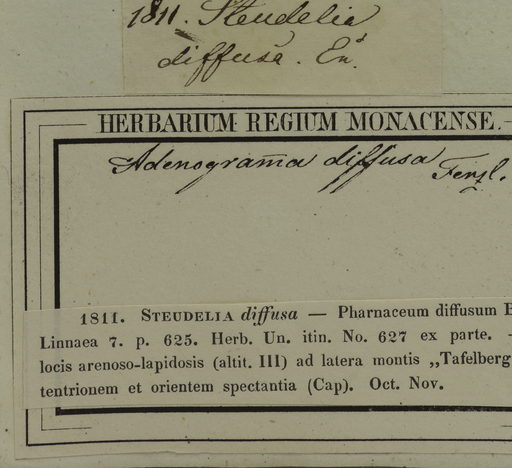 1811. Steudelia
diffusa.
HERBARIUM REGIUM MONACENSE.
Adenogram̄a diffusa
Fenzl.
1811. STEUDELIA diffusa — Pharnaceum diffusum
Linnaea 7. p. 625. Herb. Un. itin. No. 627 ex parte. —
locis arenoso-lapidosis (altit. III) ad latera montis „Tafelberg
tentrionem et orientem spectantia (Cap). Oct. Nov.